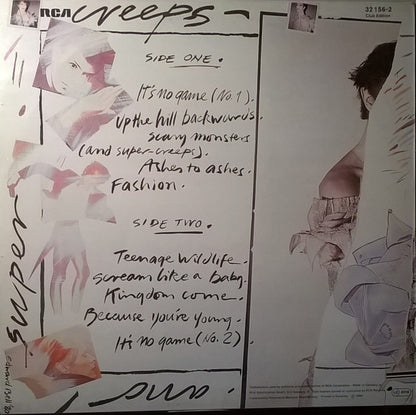 RCA
creeps
32 156-2
Club Edition
SIDE ONE.
It's no game (No. 1).
Up the hill backwards.
Scary monsters
(and super-creeps).
Ashes to ashes.
Fashion.
SIDE TWO.
Teenage Wildlife.
Scream like a baby.
Kingdom come.
Because you're young.
It's no game (No. 2).
super
and
Edward Bell